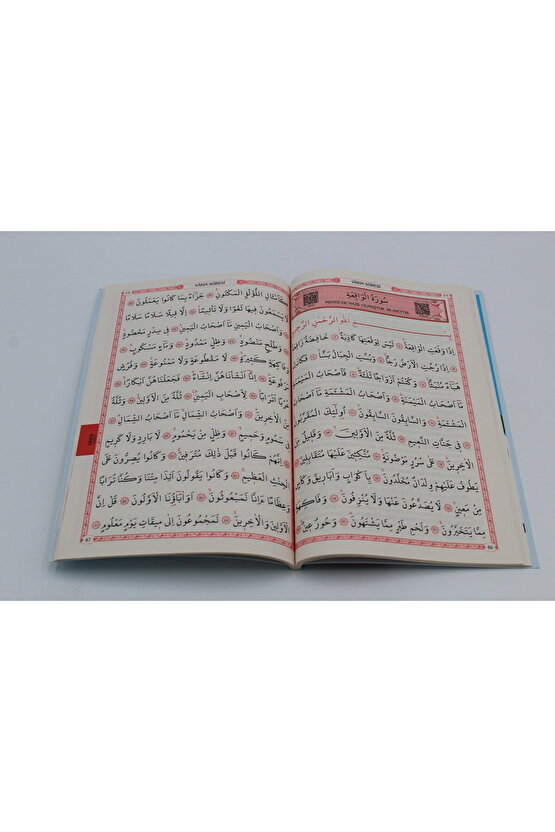 VÂKIA SÛRESİ
سُورَةُ الْوَاقِعَةِ
MEKKE'DE NAZİL OLMUŞTUR. 96 AYETTİR
اللّٰهِ الرَّحْمٰنِ الرَّحِيمِ
اِذَا وَقَعَتِ الْوَاقِعَةُ لَيْسَ لِوَقْعَتِهَا كَاذِبَةٌ خَافِضَةٌ رَافِعَةٌ
اِذَا رُجَّتِ الْاَرْضُ رَجًّا وَبُسَّتِ الْجِبَالُ بَسًّا فَكَانَتْ
هَبَاءً مُنْبَثًّا وَكُنْتُمْ اَزْوَاجًا ثَلٰثَةً فَاَصْحَابُ الْمَيْمَنَةِ
مَا اَصْحَابُ الْمَيْمَنَةِ وَاَصْحَابُ الْمَشْـَٔمَةِ مَا اَصْحَابُ
الْمَشْـَٔمَةِ وَالسَّابِقُونَ السَّابِقُونَ اُولٰٓئِكَ الْمُقَرَّبُونَ
فِي جَنَّاتِ النَّعِيمِ ثُلَّةٌ مِنَ الْاَوَّلِينَ وَقَلِيلٌ مِنَ
الْاٰخِرِينَ عَلٰى سُرُرٍ مَوْضُونَةٍ مُتَّكِـِٔينَ عَلَيْهَا مُتَقَابِلِينَ
يَطُوفُ عَلَيْهِمْ وِلْدَانٌ مُخَلَّدُونَ بِاَكْوَابٍ وَاَبَارِيقَ وَكَأْسٍ
مِنْ مَعِينٍ لَا يُصَدَّعُونَ عَنْهَا وَلَا يُنْزِفُونَ وَفَاكِهَةٍ
مِمَّا يَتَخَيَّرُونَ وَلَحْمِ طَيْرٍ مِمَّا يَشْتَهُونَ وَحُورٌ عِينٌ
66
VÂKIA SÛRESİ
كَاَمْثَالِ اللُّؤْلُؤِ الْمَكْنُونِ جَزَاءً بِمَا كَانُوا يَعْمَلُونَ
لَا يَسْمَعُونَ فِيهَا لَغْوًا وَلَا تَأْثِيمًا اِلَّا قِيلًا سَلَامًا سَلَامًا
وَاَصْحَابُ الْيَمِينِ مَا اَصْحَابُ الْيَمِينِ فِي سِدْرٍ مَخْضُودٍ
وَطَلْحٍ مَنْضُودٍ وَظِلٍّ مَمْدُودٍ وَمَاءٍ مَسْكُوبٍ
وَفَاكِهَةٍ كَثِيرَةٍ لَا مَقْطُوعَةٍ وَلَا مَمْنُوعَةٍ وَفُرُشٍ
مَرْفُوعَةٍ اِنَّا اَنْشَأْنَاهُنَّ اِنْشَاءً فَجَعَلْنَاهُنَّ اَبْكَارًا
عُرُبًا اَتْرَابًا لِاَصْحَابِ الْيَمِينِ ثُلَّةٌ مِنَ الْاَوَّلِينَ وَثُلَّةٌ
مِنَ الْاٰخِرِينَ وَاَصْحَابُ الشِّمَالِ مَا اَصْحَابُ الشِّمَالِ
فِي سَمُومٍ وَحَمِيمٍ وَظِلٍّ مِنْ يَحْمُومٍ لَا بَارِدٍ وَلَا كَرِيمٍ
اِنَّهُمْ كَانُوا قَبْلَ ذٰلِكَ مُتْرَفِينَ وَكَانُوا يُصِرُّونَ عَلَى
الْحِنْثِ الْعَظِيمِ وَكَانُوا يَقُولُونَ اَئِذَا مِتْنَا وَكُنَّا تُرَابًا
وَعِظَامًا ءَاِنَّا لَمَبْعُوثُونَ اَوَاٰبَاؤُنَا الْاَوَّلُونَ قُلْ اِنَّ
الْاَوَّلِينَ وَالْاٰخِرِينَ لَمَجْمُوعُونَ اِلٰى مِيقَاتِ يَوْمٍ مَعْلُومٍ
67